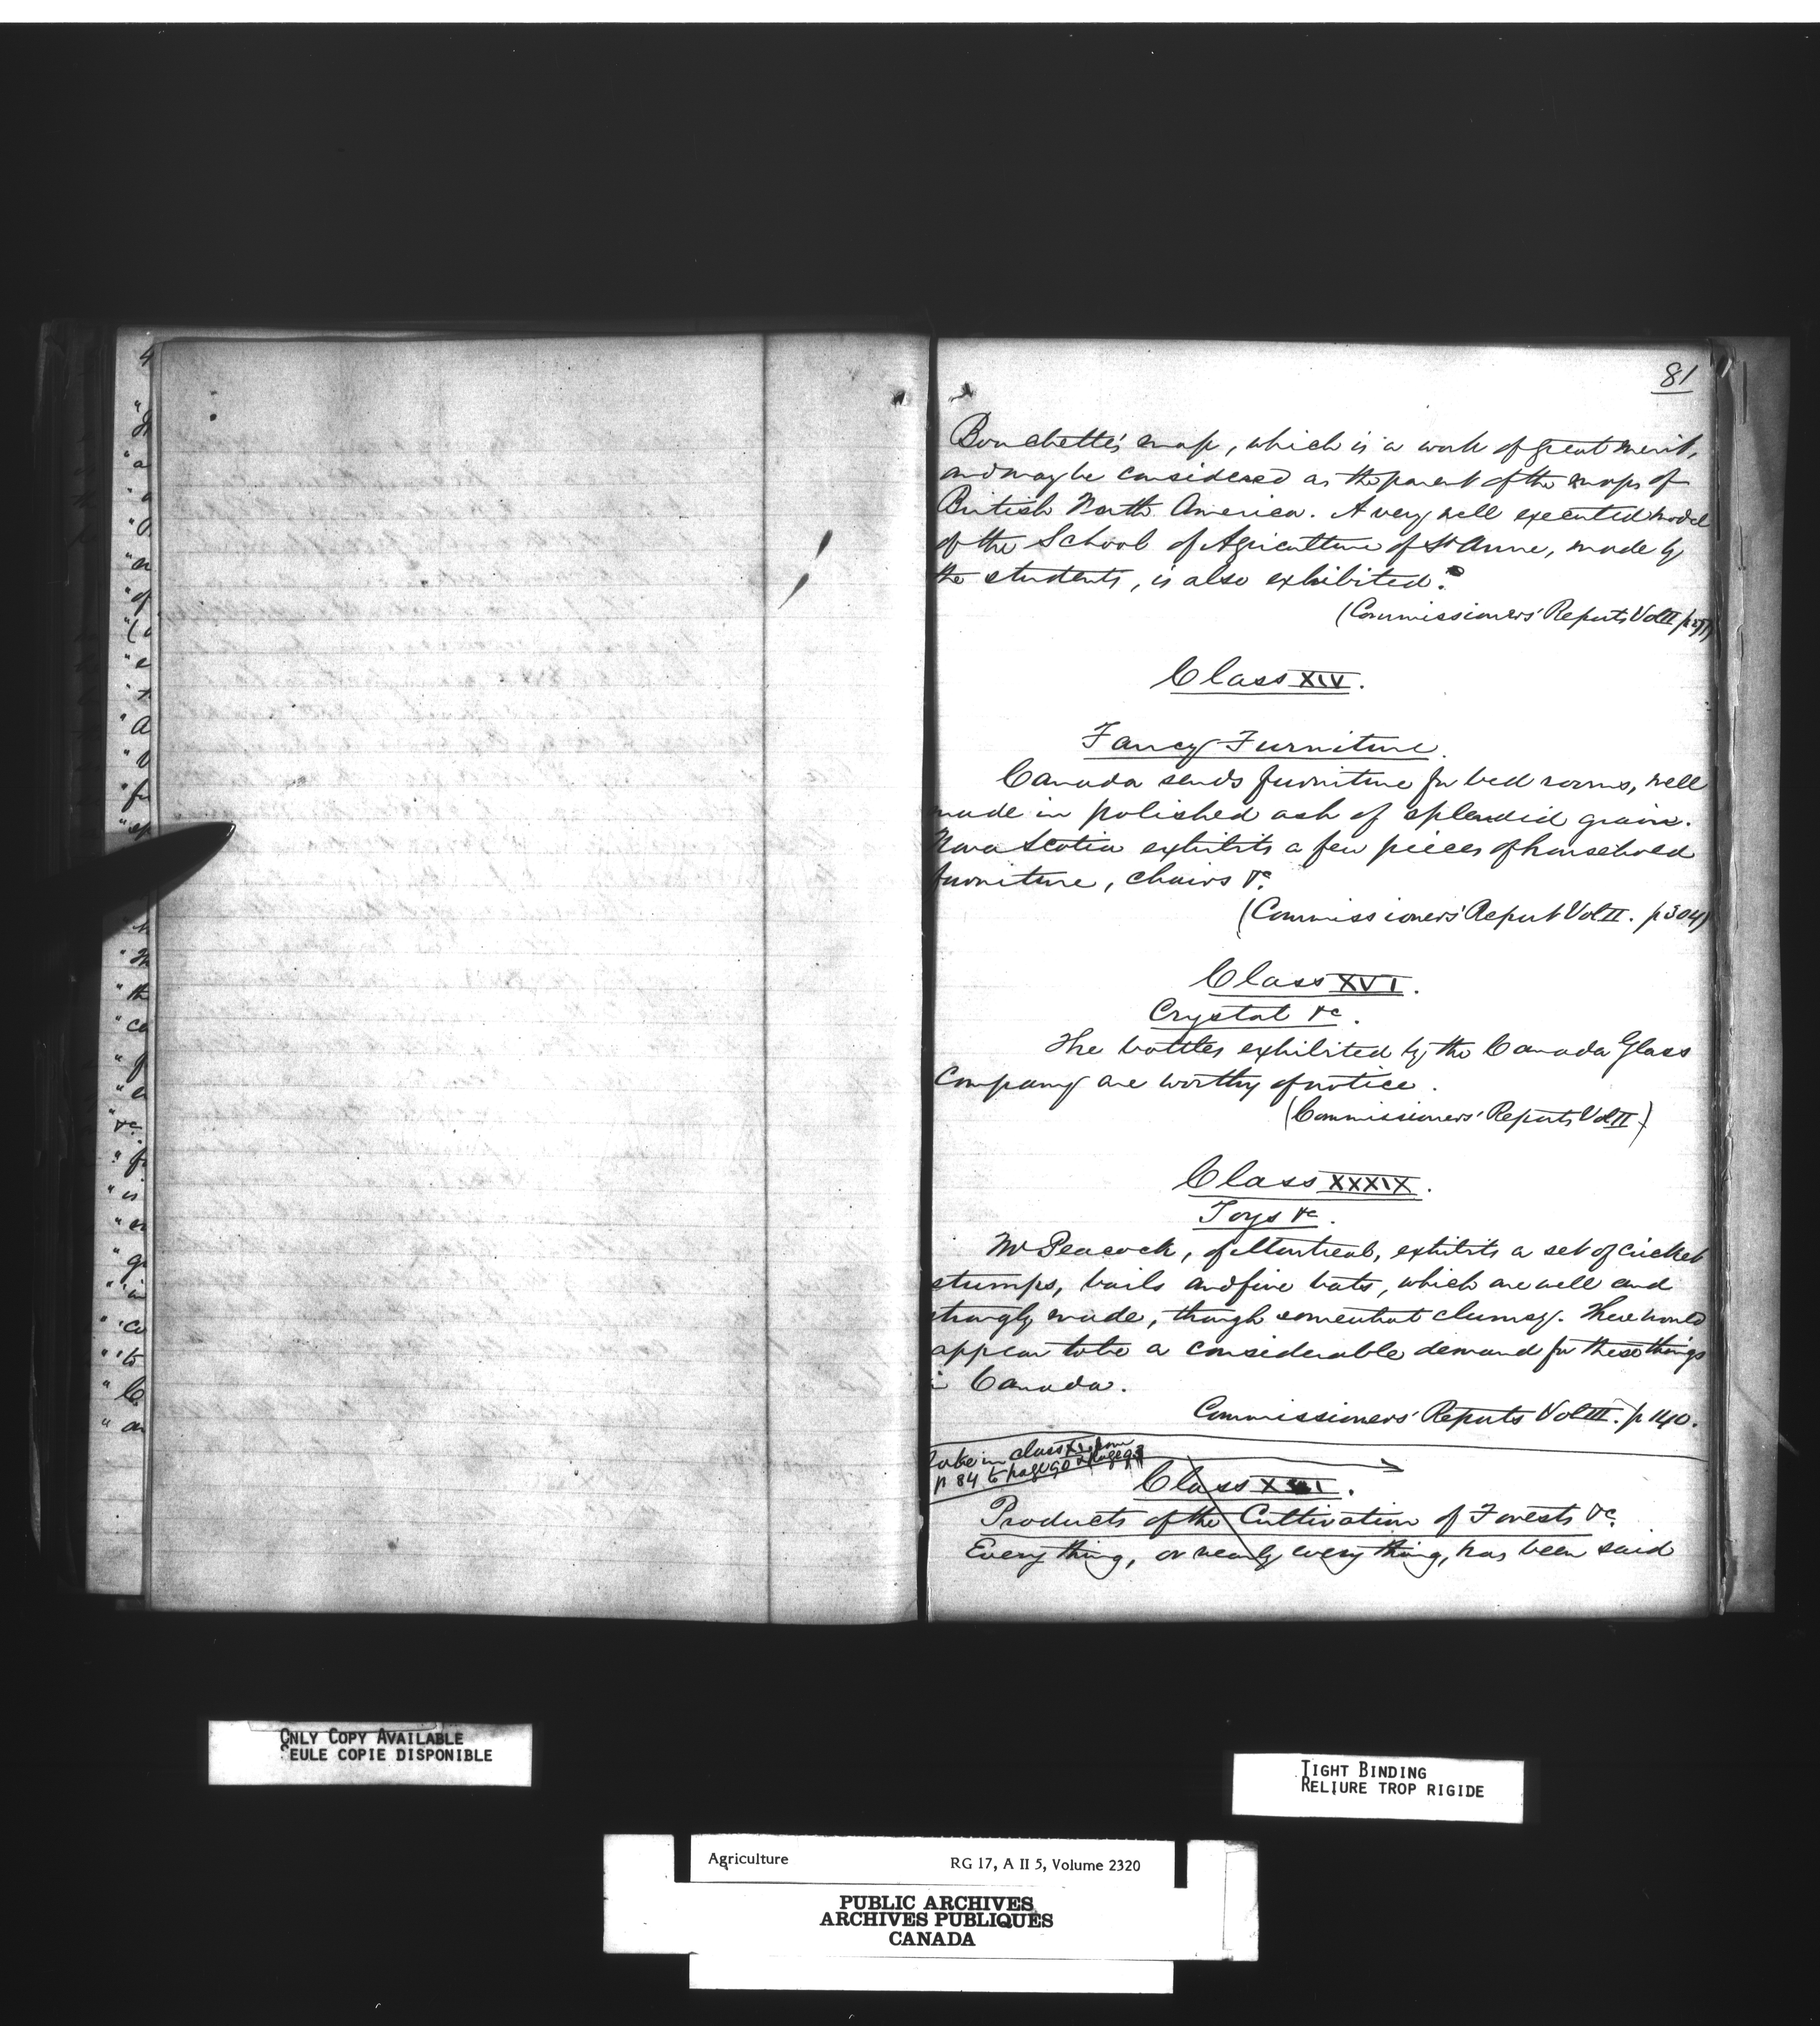 81
Bouchette's map, which is a work of great merit,
and may be considered as the parent of the maps of
British North America. A very well executed model
of the School of Agriculture of St Anne, made by
the students, is also exhibited.
(Commissioners' Reports Vol II
Class XIV.
Fancy Furniture.
Canada sends furniture for bed rooms, well
made in polished ash of splendid grain.
Nova Scotia exhibits a few pieces of household
furniture, chairs &c.
(Commissioners' Report Vol II. p 304)
Class XVI.
Crystal &c.
The bottles exhibited by the Canada Glass
Company are worthy of notice.
(Commissioners' Reports Vol II)
Class XXXIX.
Toys &c.
Mr Peacock, of Montreal, exhibits a set of cricket
stumps, bails and five bats, which are well and
strongly made, though somewhat clumsy. There would
appear to be a considerable demand for these things
in Canada.
Commissioners' Reports Vol III. p 140.
take in class from
p 84 to page 90
Class
Products of the Cultivation of Forests &c.
Every thing, or nearly every thing, has been said
ONLY COPY AVAILABLE
SEULE COPIE DISPONIBLE
TIGHT BINDING
RELIURE TROP RIGIDE
Agriculture RG 17, A II 5, Volume 2320
PUBLIC ARCHIVES
ARCHIVES PUBLIQUES
CANADA